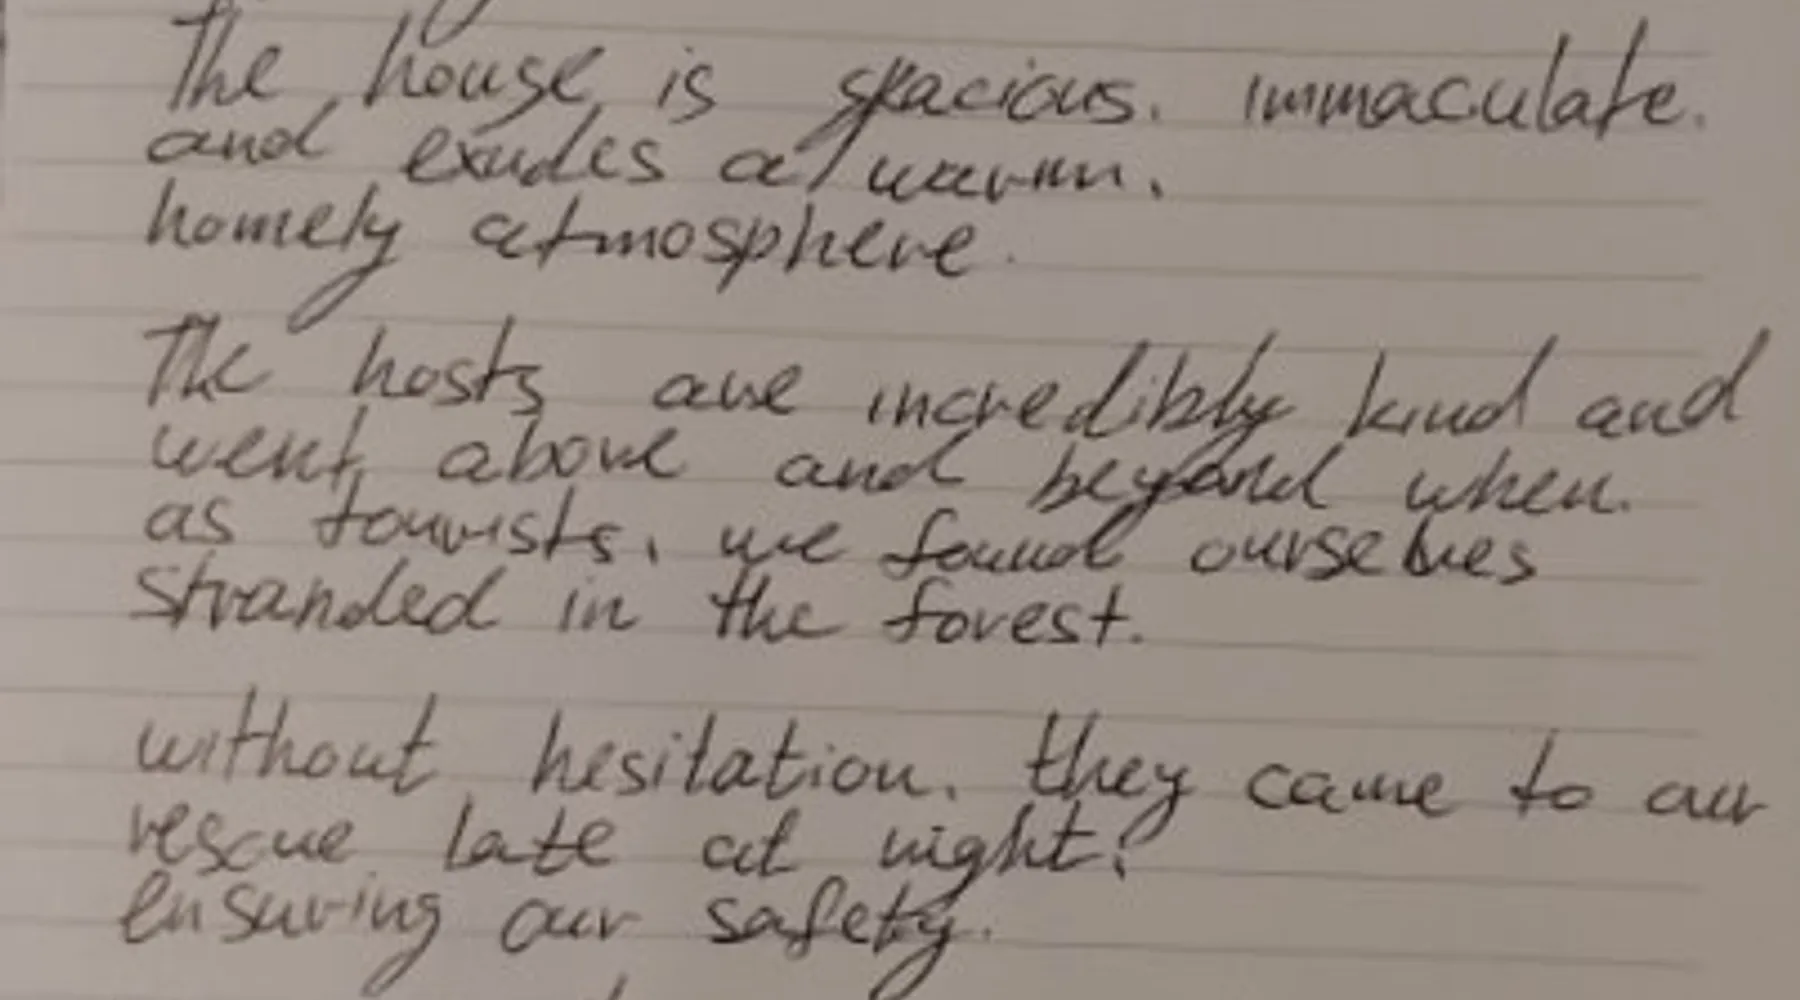 The house is spacious. immaculate.
and exudes a warm,
homely atmosphere.
The hosts are incredibly kind and
went above and beyond when.
as tourists, we found ourselves
stranded in the forest.
without hesitation. they came to our
rescue late at night?
ensuring our safety.